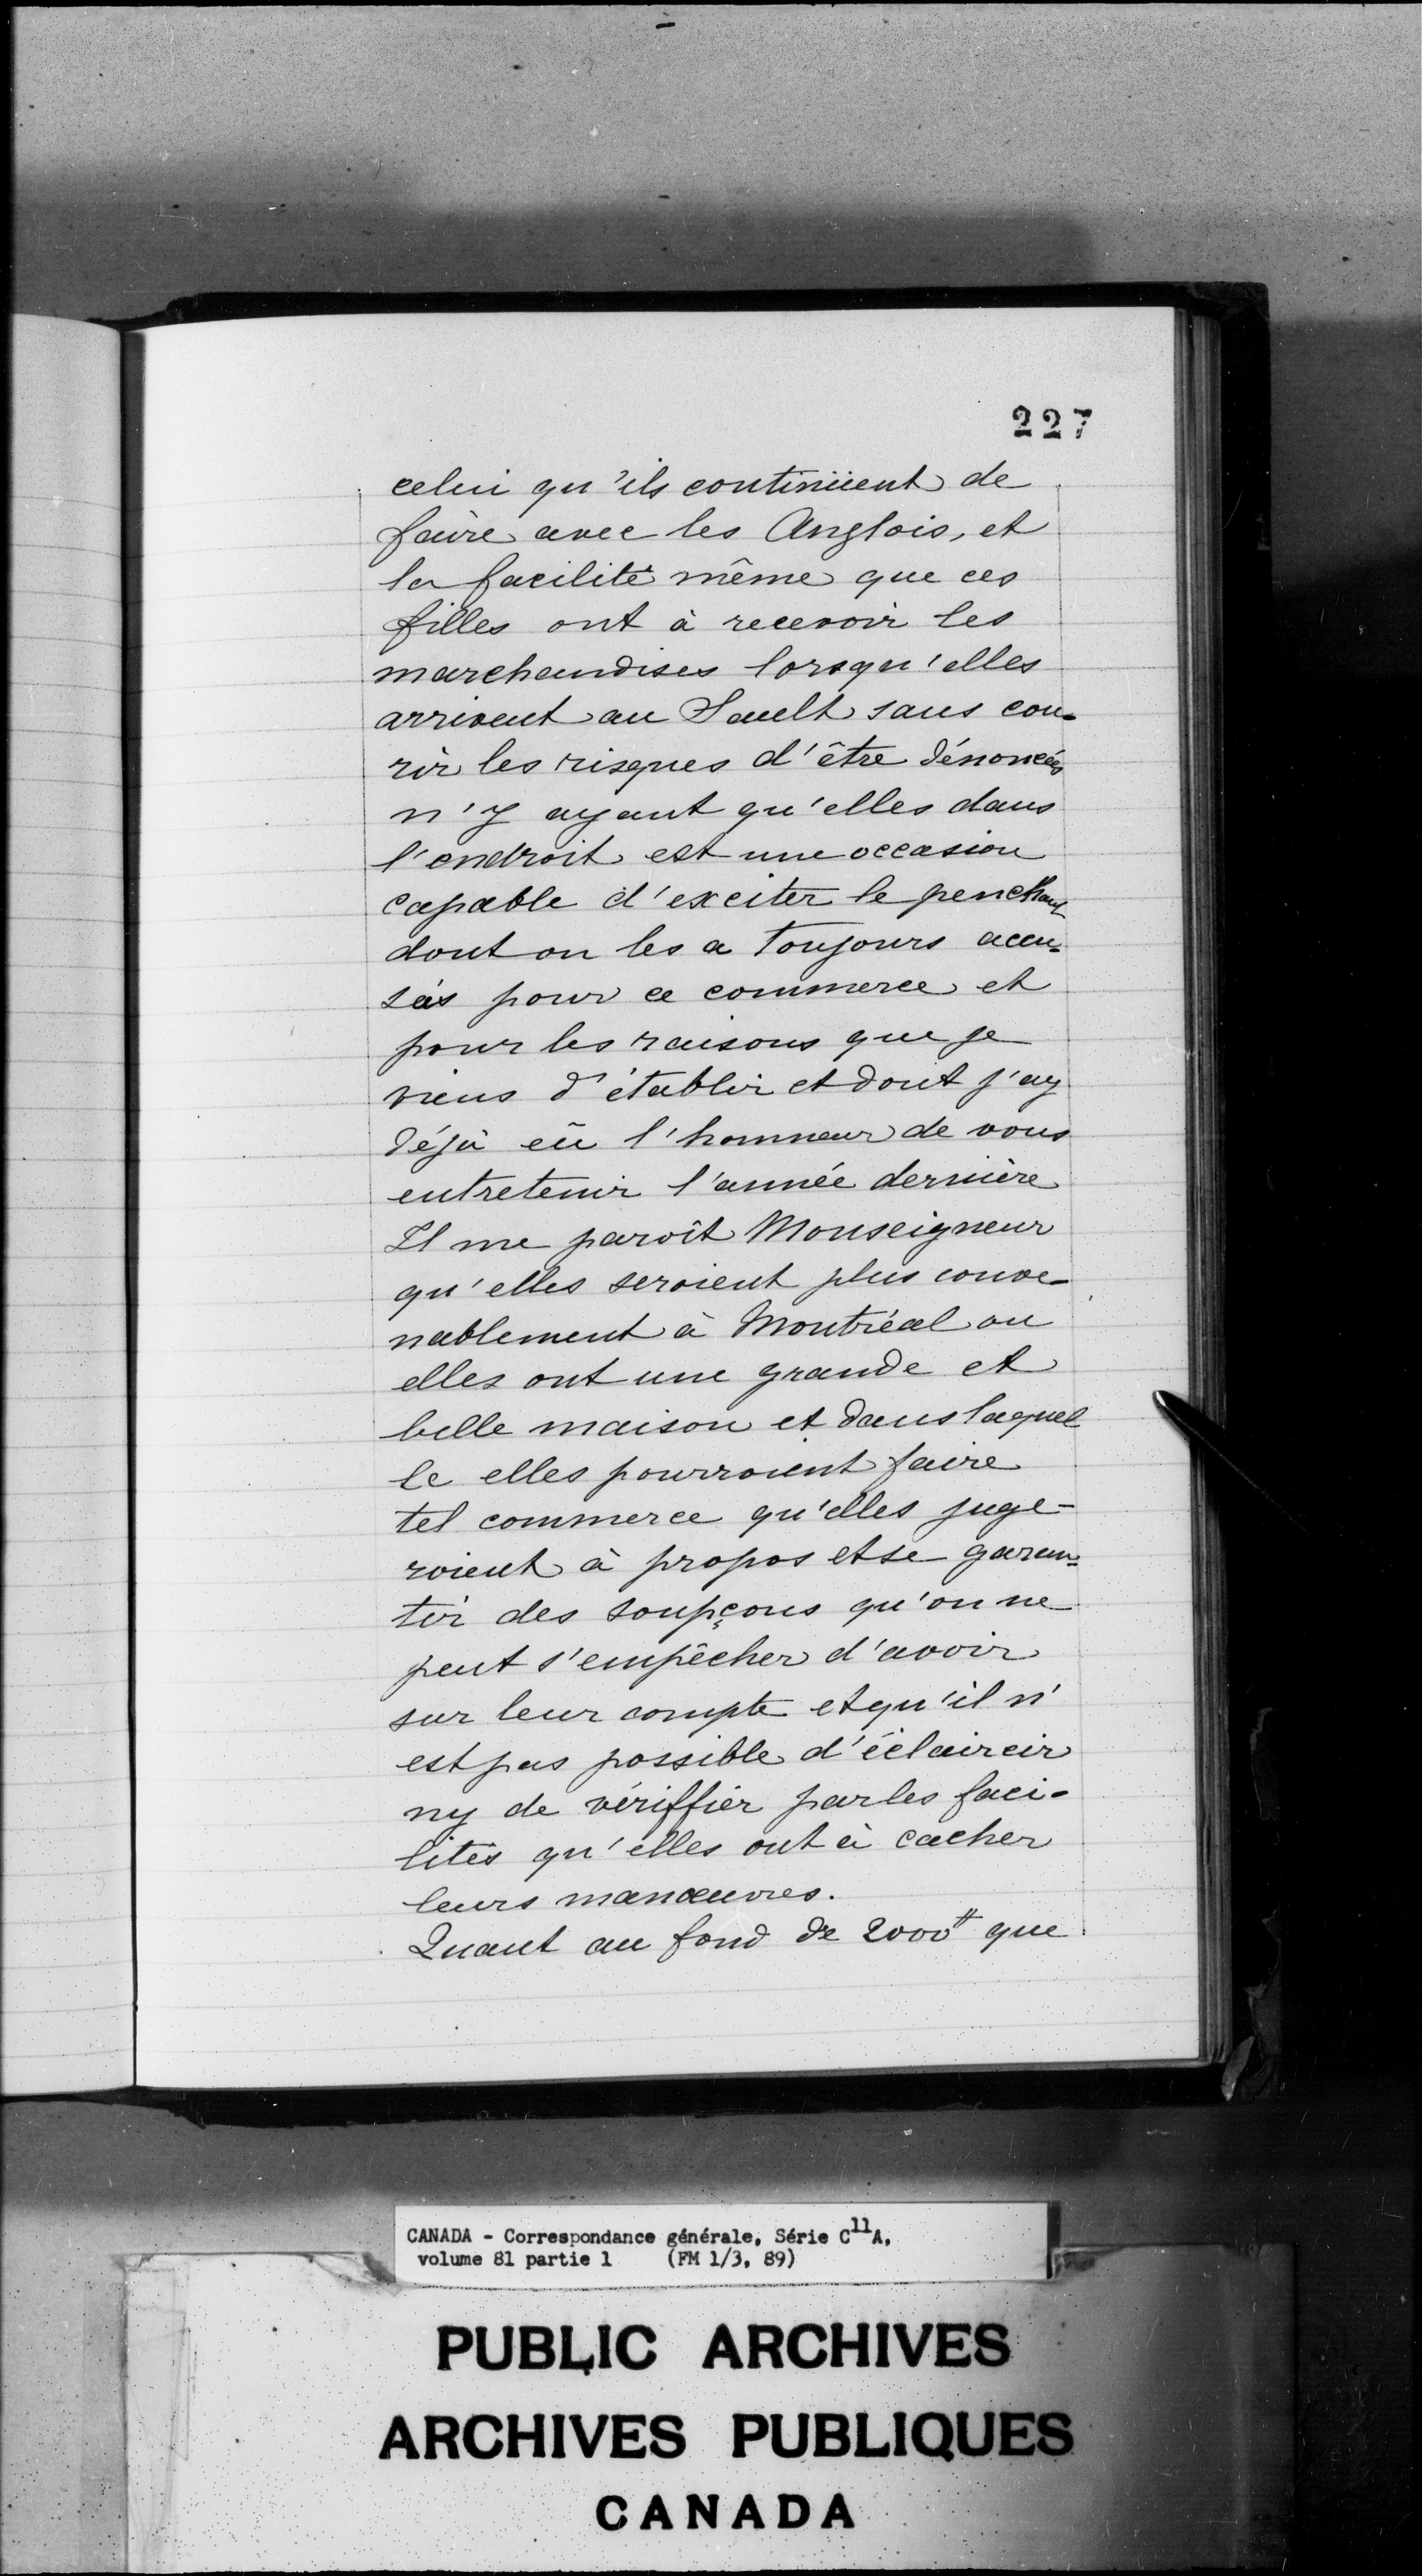 227
celui qu'ils continüent de
faire avec les Anglois, et
la facilité même que ces
filles ont à recevoir les
marchandises lorsqu'elles
arrivent au Sault sans cou-
rir les risques d'être dénoncées
n'y ayant qu'elles dans
l'endroit est une occasion
capable d'exciter le penchant
dont on les a toujours accu-
sées pour ce commerce et
pour les raisons que je
viens d'établir et dont j'ay
déjà eû l'honneur de vous
entretenir l'année dernière
Il me paroît Monseigneur
qu'elles seroient plus conve-
nablement à Montréal ou
elles ont une grande et
belle maison et dans laquel
le elles pourroient faire
tel commerce qu'elles juge-
roient à propos et se garan-
tir des soupçons qu'on ne
peut s'empêcher d'avoir
sur leur compte et qu'il n'
est pas possible d'éclaircir
ny de vériffier par les faci-
lités qu'elles ont à cacher
leurs manœuvres.
Quant au fond de 2000# que
CANADA - Correspondance générale, Série C11A,
volume 81 partie 1 (FM 1/3, 89)
PUBLIC ARCHIVES
ARCHIVES PUBLIQUES
CANADA